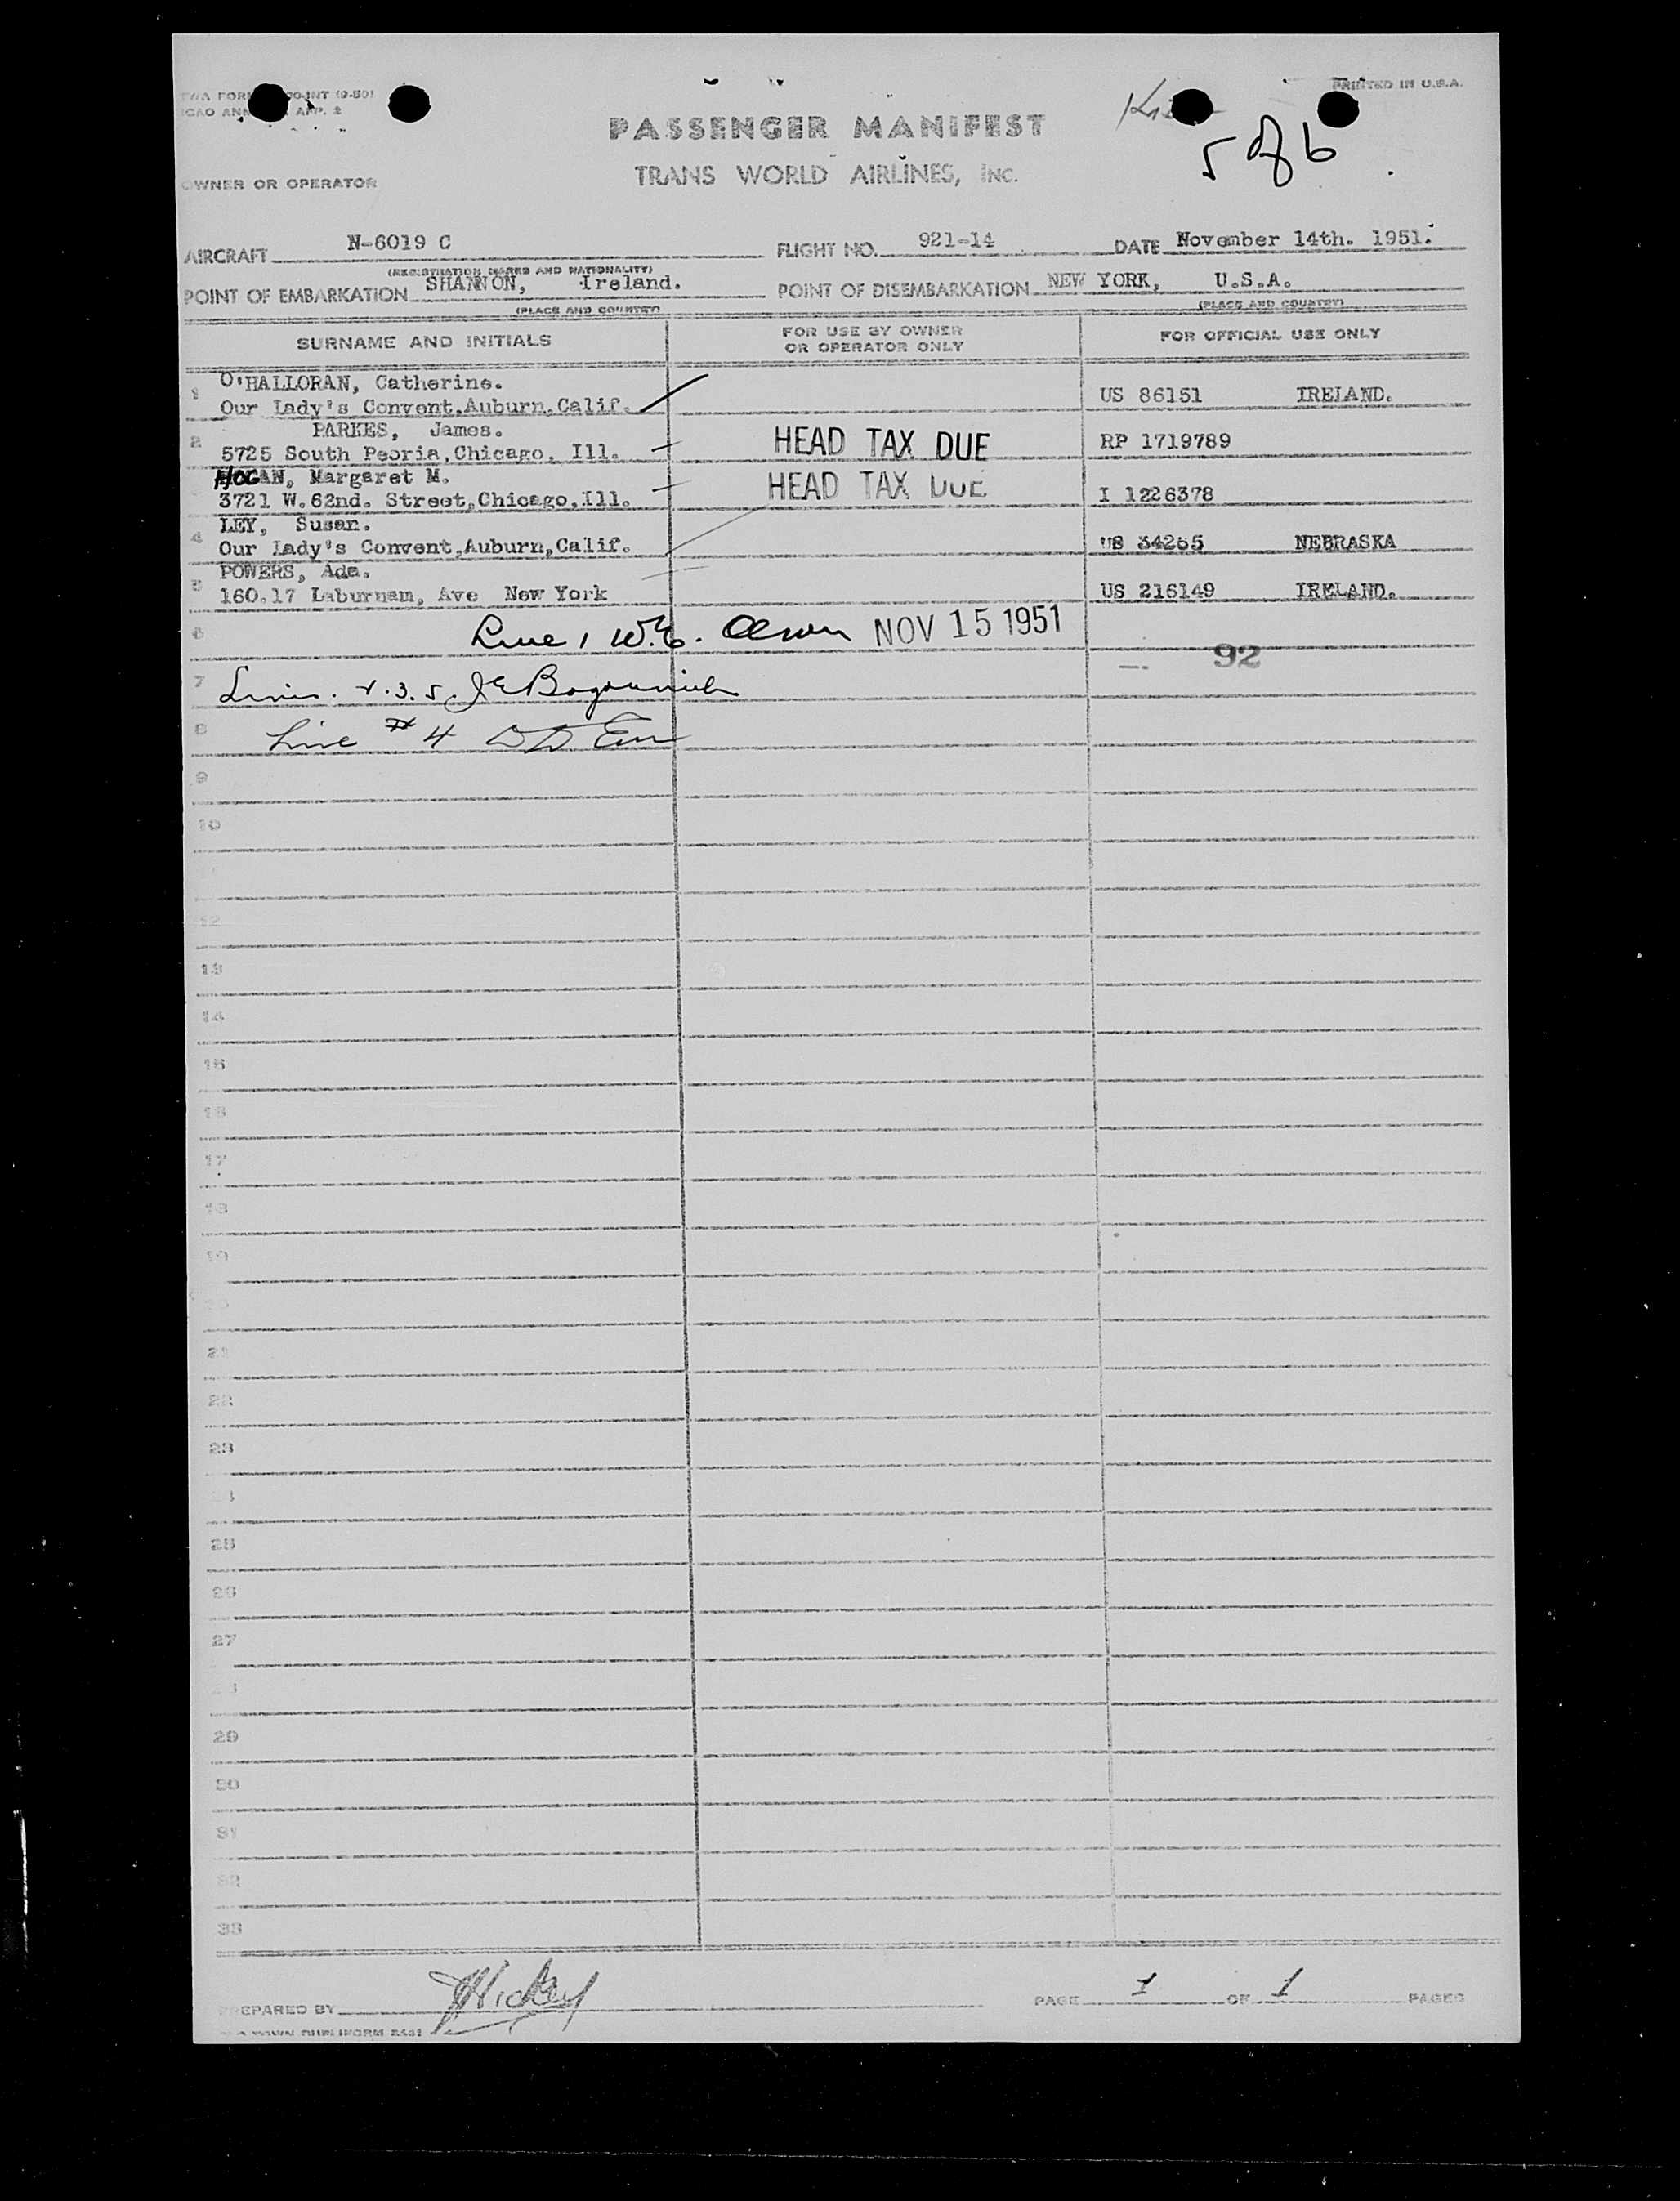 PRINTED IN U.S.A.
APP. 2
PASSENGER MANIFEST
5 of 6
TRANS WORLD AIRLINES, INC.
OWNER OR OPERATOR
AIRCRAFT N-6019 C FLIGHT NO. 921-14 DATE November 14th. 1951.
(REGISTRATION MARKS AND NATIONALITY)
POINT OF EMBARKATION SHANNON, Ireland. POINT OF DISEMBARKATION NEW YORK, U.S.A.
(PLACE AND COUNTRY) (PLACE AND COUNTRY)
SURNAME AND INITIALS FOR USE BY OWNER OR OPERATOR ONLY FOR OFFICIAL USE ONLY
1 O'HALLORAN, Catherine.
Our Lady's Convent,Auburn,Calif. US 86151 IRELAND.
2 PARKES, James.
5725 South Peoria,Chicago, Ill. HEAD TAX DUE RP 1719789
HOGAN, Margaret M.
3721 W.62nd. Street,Chicago,Ill. HEAD TAX DUE I 1226378
4 LEY, Susan.
Our Lady's Convent,Auburn,Calif. US 34265 NEBRASKA
5 POWERS, Ada.
160.17 Laburnam, Ave New York US 216149 IRELAND.
6 Line 1 W.E. Olsen NOV 15 1951
92
7 3. 5.
8 Line # 4
9
10
12
13
14
15
16
17
18
19
21
22
23
25
26
27
29
30
31
32
33
PREPARED BY JHickey PAGE 1 OF 1 PAGES